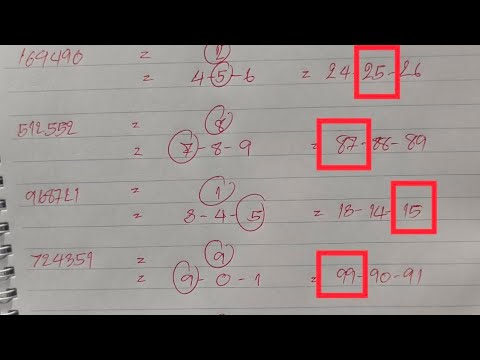 169490 = 2
= 4-5-6 = 24-25-26
512552 = 8
= 7-8-9 = 87-86-89
968721 = 1
= 3-4-5 = 13-14-15
724351 = 9
= 9-0-1 = 99-90-91